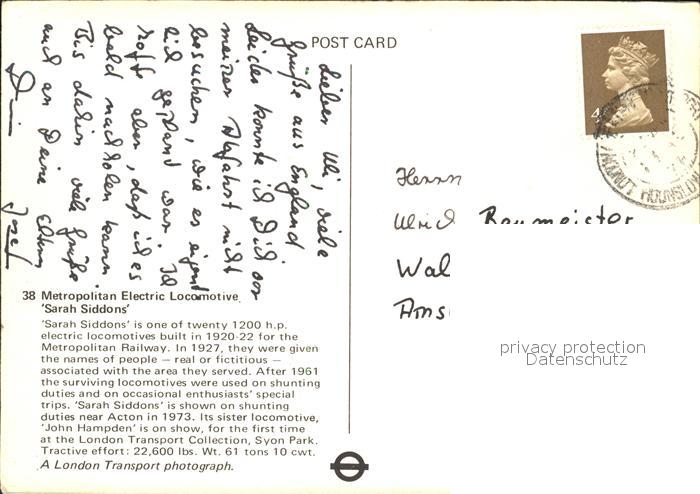 POST CARD
Lieber Uli, viele
Grüße aus England
Leider konnte ich Dich vor
meiner Abfahrt nicht
besuchen, wie es eigent
lich geplant war. Ich
hoff aber, daß ich es
bald nachholen kann
Bis dahin viele Grüße
auch an Deine Eltern
Dein Josef
38 Metropolitan Electric Locomotive
'Sarah Siddons'
'Sarah Siddons' is one of twenty 1200 h.p.
electric locomotives built in 1920-22 for the
Metropolitan Railway. In 1927, they were given
the names of people — real or fictitious —
associated with the area they served. After 1961
the surviving locomotives were used on shunting
duties and on occasional enthusiasts' special
trips. 'Sarah Siddons' is shown on shunting
duties near Acton in 1973. Its sister locomotive,
'John Hampden' is on show, for the first time
at the London Transport Collection, Syon Park.
Tractive effort: 22,600 lbs. Wt. 61 tons 10 cwt.
A London Transport photograph.
4
HOUNSLOW
Herrn
Ulrich Baumeister
Wal
Ams
privacy protection
Datenschutz